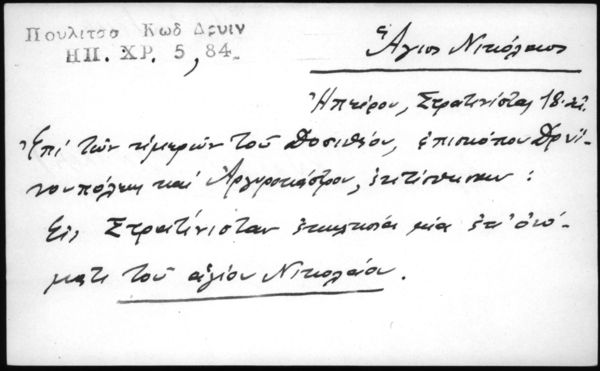 Πουλιτσα Κωδ Δρυιν
ΗΠ. ΧΡ. 5, 84.
Ἅγιος Νικόλαος
Ἠπείρου, Στρατίνιστας 18.
Ἐπί τῶν ἡμερῶν τοῦ Δοσιθέου, ἐπισκόπου Δρυϊ-
νουπόλεως καί Ἀργυροκάστρου, ἐκτίσθησαν :
Εἰς Στρατίνισταν ἐκκλησία μία ἐπ' ὀνό-
ματι τοῦ ἁγίου Νικολάου.